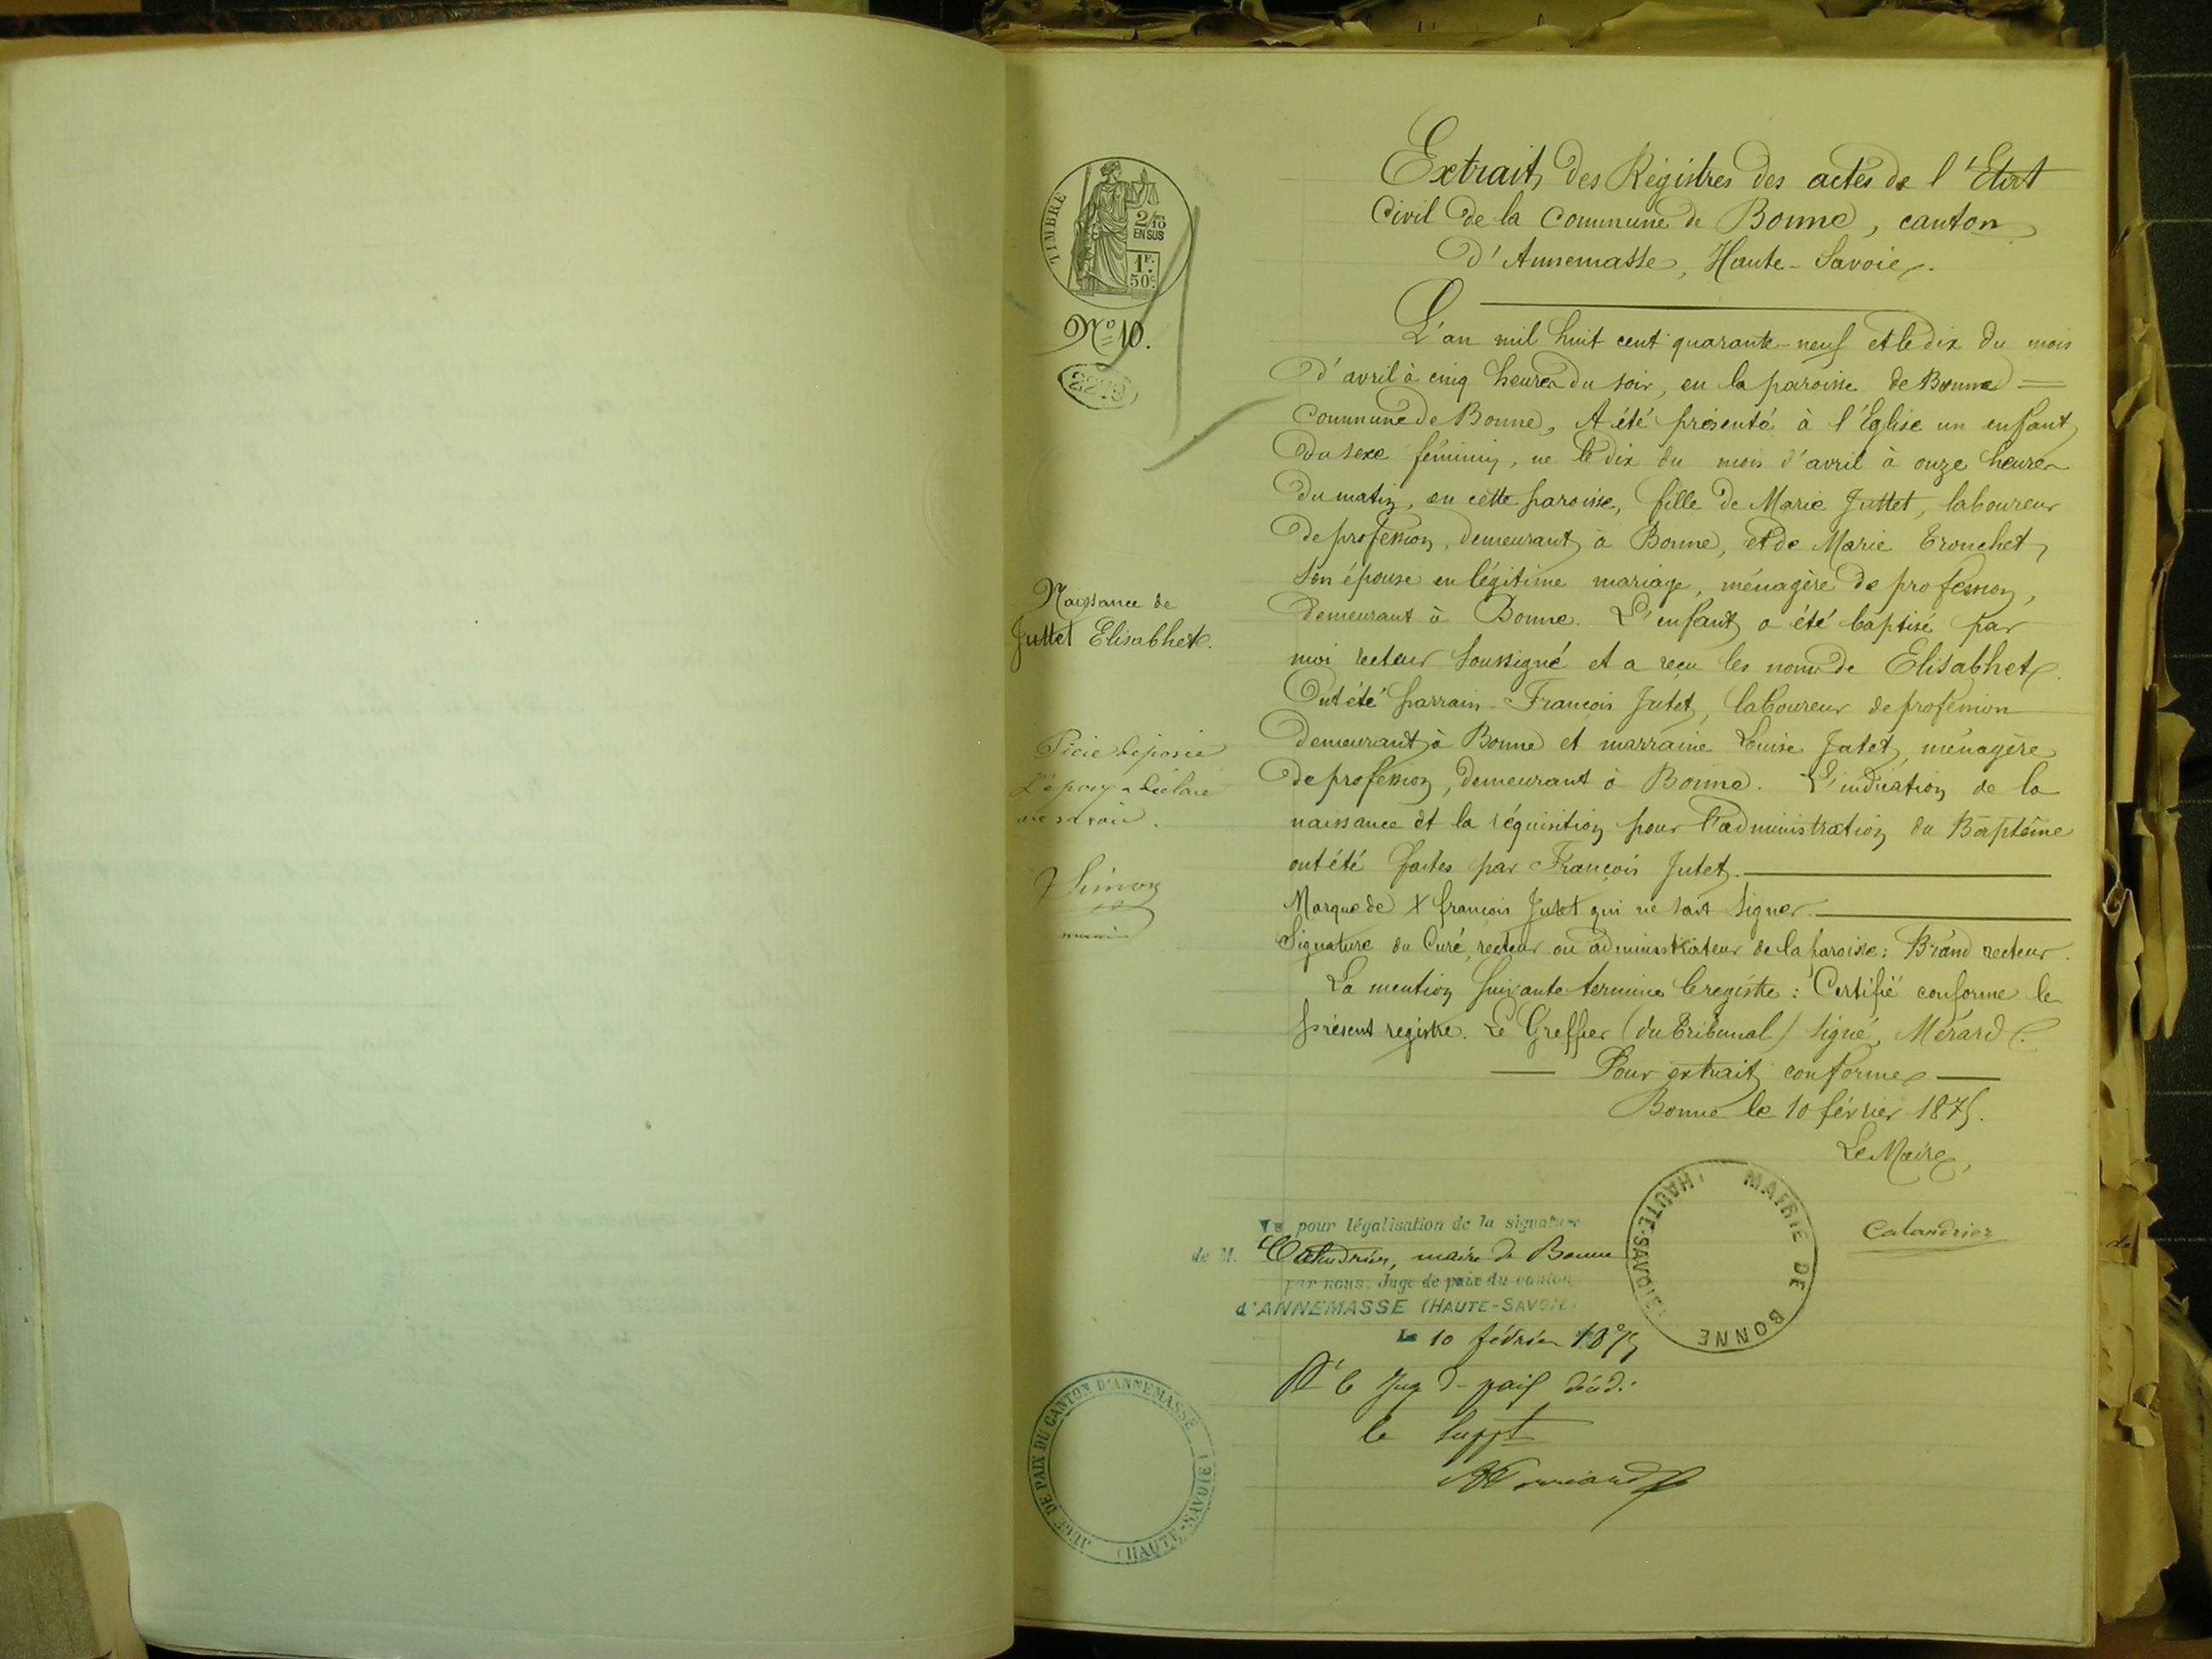 TIMBRE
2/10
EN SUS
1F.
50c.
No 10.
Naissance de
Juttet Elisabhet.
Pièce déposée
L'époux a déclaré
Simon
Extrait des Régistres des actes de l'Etat
Civil de la Commune de Bonne, canton
d'Annemasse, Haute-Savoie.
L'an mil huit cent quarante-neuf et le dix du mois
d'avril à cinq heures du soir, en la paroisse de Bonne =
commune de Bonne, A été présenté à l'Eglise un enfant
du sexe féminin, né le dix du mois d'avril à onze heures
du matin, en cette paroisse, fille de Marie Juttet, laboureur
de profession, demeurant à Bonne, et de Marie Tronchet,
son épouse en légitime mariage, ménagère de profession,
demeurant à Bonne. L'enfant a été baptisé par
moi recteur soussigné et a reçu les noms de Elisabhet.
Ont été parrain François Jutet, laboureur de profession
demeurant à Bonne et marraine Louise Jutet, ménagère
de profession, demeurant à Bonne. L'indication de la
naissance et la réquisition pour l'administration du Baptême
ont été faites par François Jutet.
Marque de X françois Jutet qui ne sait signer.
Signature du Curé, recteur ou administrateur de la paroisse : Brand recteur.
La mention suivante termine le registre : Certifié conforme le
présent registre. Le Greffier (du Tribunal) signé, Mérard.
Pour extrait conforme
Bonne le 10 février 1875.
Le Maire,
Calandrier
MAIRIE DE BONNE
(HAUTE-SAVOIE)
Vu pour légalisation de la signature
de M. Calendrier, maire de Bonne
par nous, Juge de paix du canton
d'ANNEMASSE (HAUTE-SAVOIE)
Le 10 février 1875
Pr le Juge de paix
le Suppt
JUGE DE PAIX DU CANTON D'ANNEMASSE
(HAUTE-SAVOIE)
de